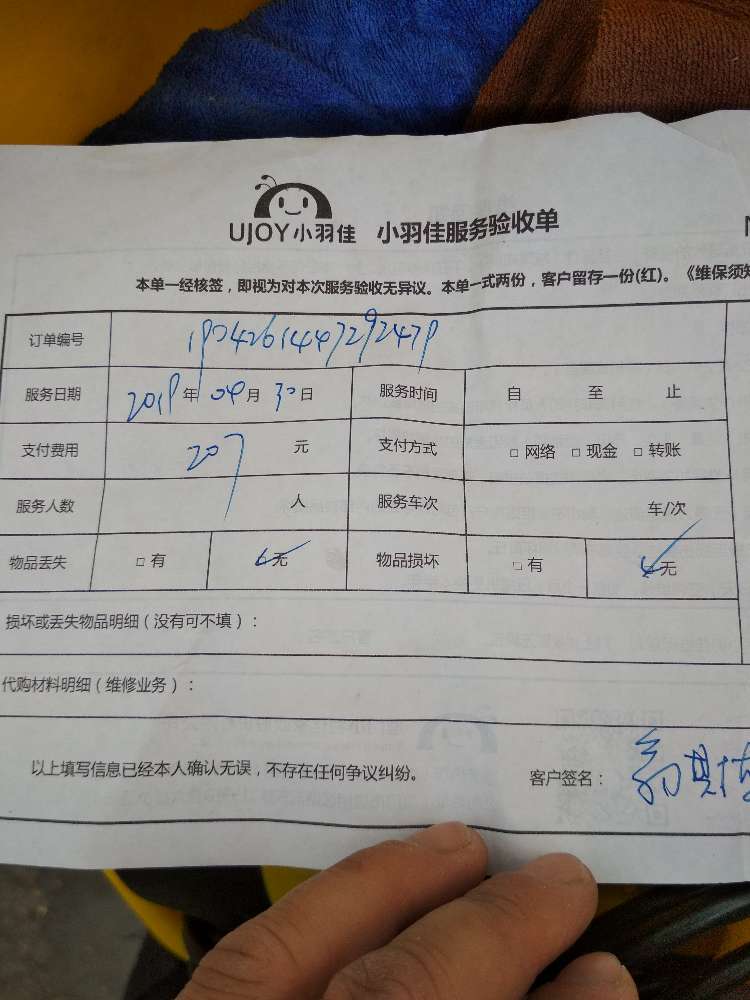 UJOY小羽佳 小羽佳服务验收单
本单一经核签，即视为对本次服务验收无异议。本单一式两份，客户留存一份(红)。《维保须知
订单编号 1904261447292479
服务日期 2019年04月30日 服务时间 自 至 止
支付费用 207 元 支付方式 □ 网络 □ 现金 □ 转账
服务人数 人 服务车次 车/次
物品丢失 □ 有 ✓无 物品损坏 □ 有 ✓无
损坏或丢失物品明细（没有可不填）：
代购材料明细（维修业务）：
以上填写信息已经本人确认无误，不存在任何争议纠纷。 客户签名：